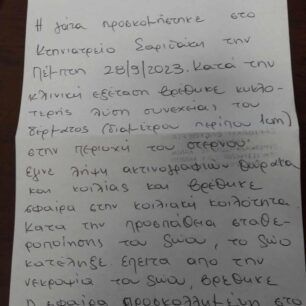 Η γάτα προσκομήστηκε στο
Κτηνιατρείο Σαριδάκη την
Πέμπτη 28/9/2023. Κατά την
κλινική εξέταση βρέθηκε κυκλο-
τερής λύση συνεχείας του
δέρματος (διαμέτρου περίπου 1cm)
στην περιοχή του στέρνου.
Έγινε λήψη ακτινογραφιών θώρακα
και κοιλίας και βρέθηκε
σφαίρα στην κοιλιακή κοιλότητα.
Κατά την προσπάθεια σταθε-
ροποίησης του ζώου, το ζώο
κατέληξε. Έπειτα από την
νεκροψία του ζώου, βρέθηκε
η σφαίρα προσκολλημένη στο